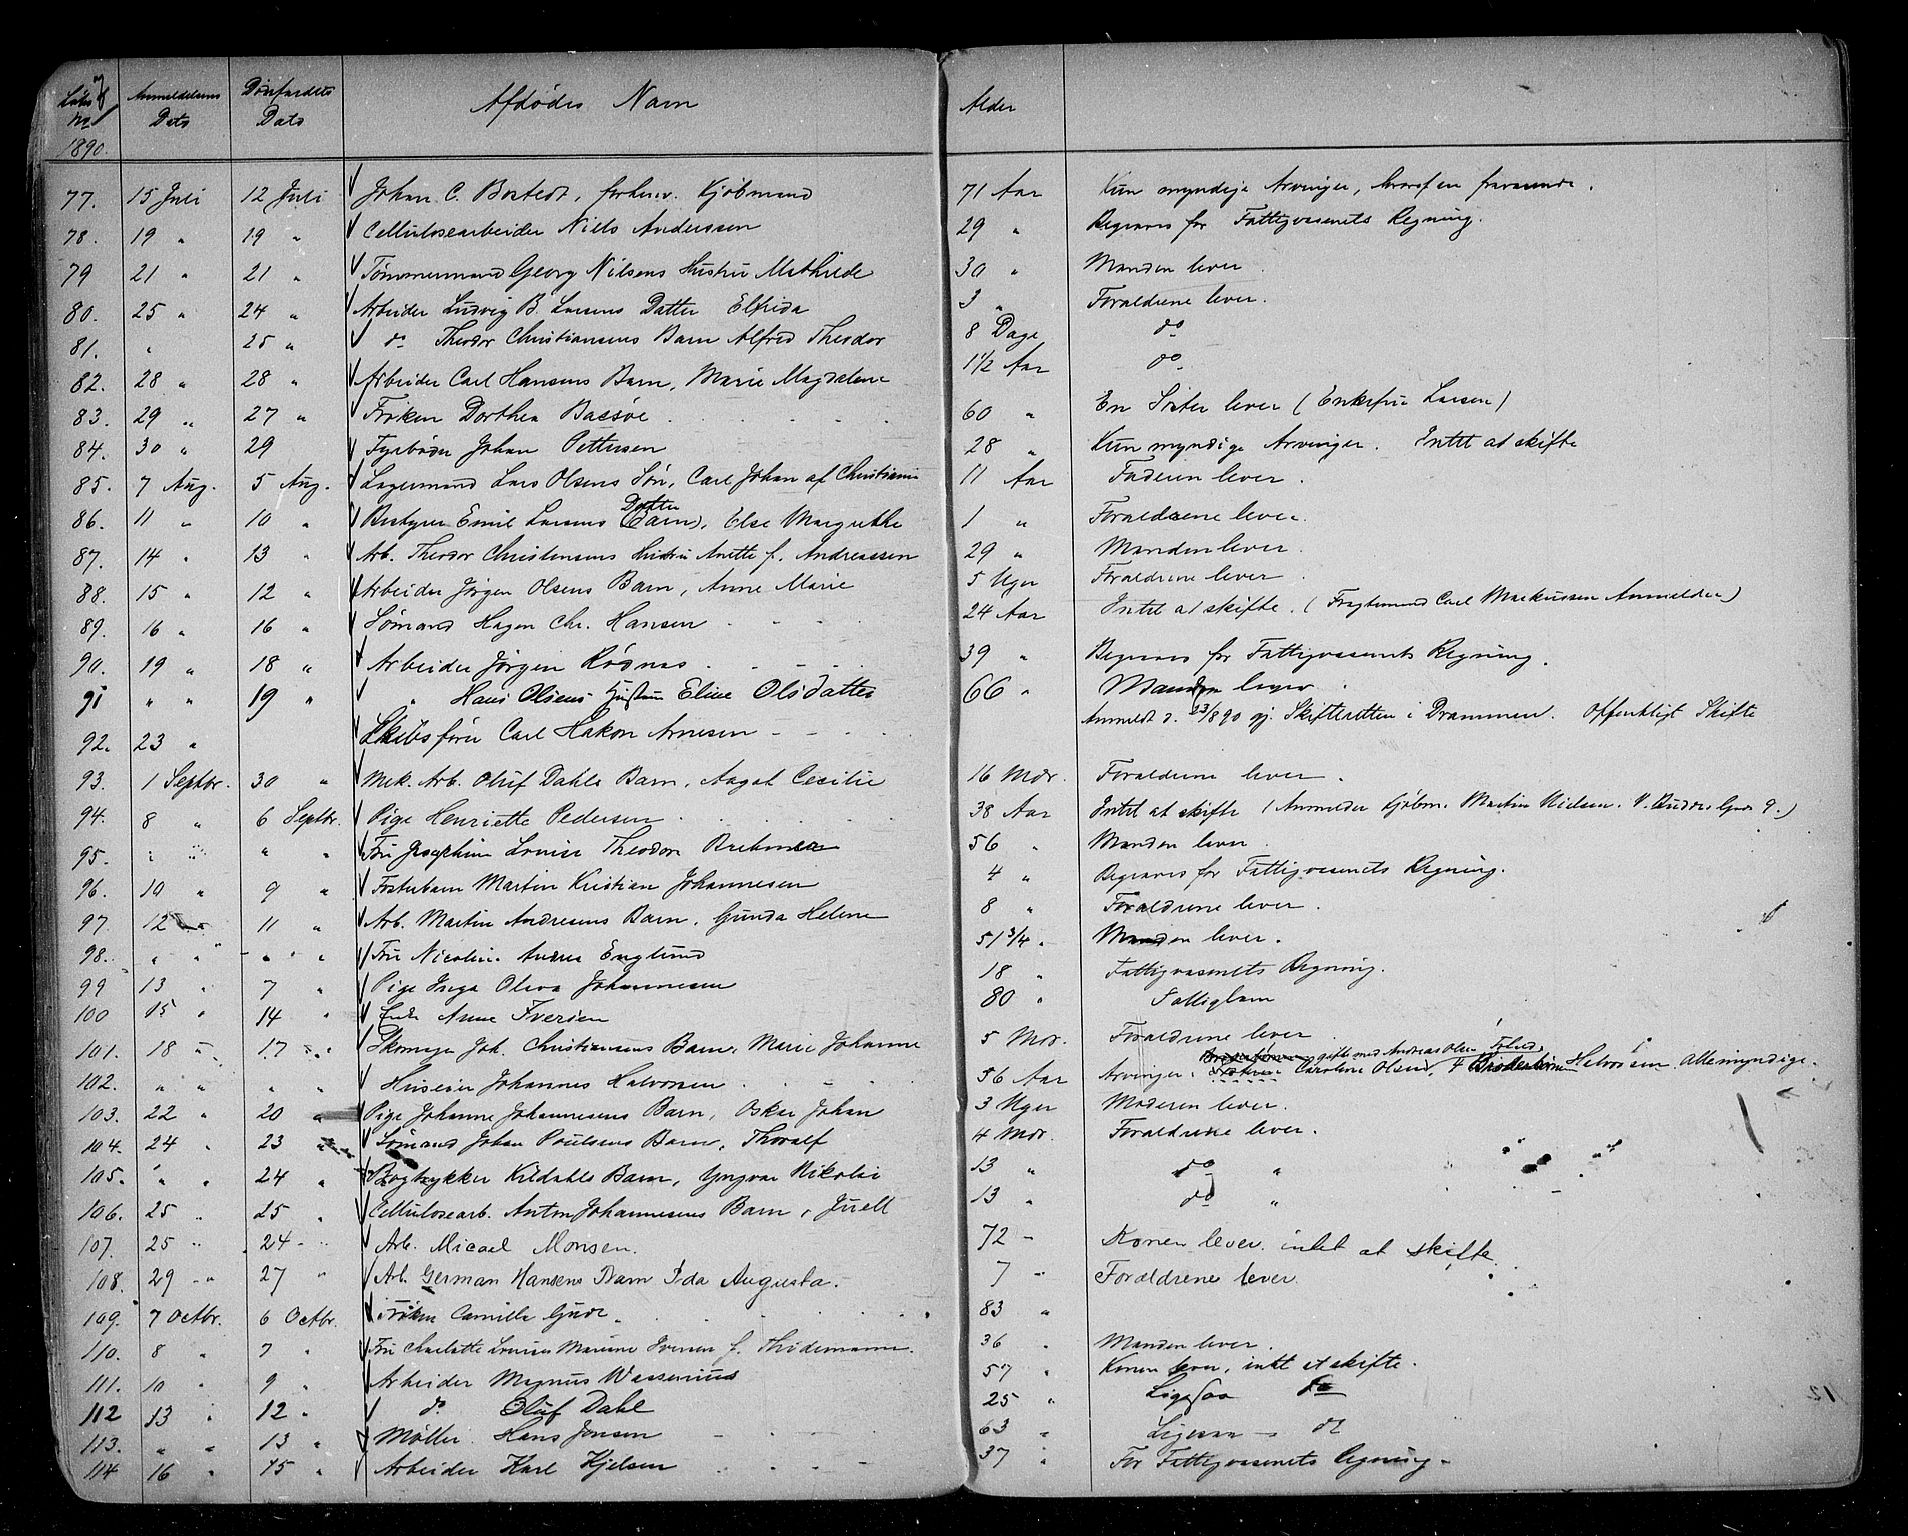 Løbe No Anmeldelsens Dato Dødsfaldets Dato Afdødes Navn Alder
1890.
77. 15 Juli 12 Juli Johan C. Bostedt, forhenv. Kjøbmand 71 Aar Kun myndige Arvinger, hvoraf en fraværende.
78. 19 " 19 " Cellulosearbeider Niels Anderssen 29 " Begraves for Fattigvæsenets Regning.
79 21 " 21 " Tømmermand Georg Nilsens Hustru Mathilde 30 " Manden lever.
80. 25 " 24 " Arbeider Ludvig B. Larsens Datter Elfrida 3 " Forældrene lever.
81. " 25 " do Theodor Christiansens Barn Alfred Theodor 8 Dage do
82. 28 " 28 " Arbeider Carl Hansens Barn, Marie Magdalene 1 1/2 Aar do
83. 29 " 27 " Frøken Dorthea Bassøe 60 " En Søster lever (Enkefru Larsen)
84. 30 " 29 Fyrbøder Johan Pettersen 28 " Kun myndige Arvinger. Intet at skifte
85. 7 Aug. 5 Aug. Lagermand Lars Olsens Søn, Carl Johan af Christiania 11 Aar Faderen lever.
86. 11 " 10 " Bestyrer Emil Larsens (Barn) Datter, Else Margrethe 1 " Forældrene lever.
87. 14 " 13 " Arb. Theodor Christensens Hustru Anette f. Andreassen 29 " Manden lever.
88. 15 " 12 " Arbeider Jørgen Olsens Barn, Anne Marie 5 Uger Forældrene lever.
89. 16 " 16 " Sømand Hagen Chr. Hansen 24 Aar Intet at skifte. (Fragtemand Carl Markussen Anmelder)
90. 19 " 18 " Arbeider Jørgen Røsnæs 39 " Begraves for Fattigvæsenets Regning.
91 " " 19 " " Hans Olsens Hustru Eline Olsdatter 66 " Manden lever.
92. 23 " Skibsfører Carl Hakon Arnesen Anmeldt d. 23/8 90 gj. Skifteretten i Drammen. Offentligt Skifte
93. 1 Septbr. 30 " Mek. Arb. Oluf Dahls Barn, Aagot Cecilie 16 Mdr. Forældrene lever.
94. 8 " 6 Septbr. Pige Henriette Pedersen 38 Aar Intet at skifte (Anmelder Kjøbm. Martin Nielsen. V. Budde. Gade 9.)
95. " " " " Fru Josephine Louise Theodora 56 " Manden lever
96. 10 " 9 " Fosterbarn Martin Kristian Johannesen 4 " Begraves for Fattigvæsenets Regning.
97. 12 " 11 " Arb. Martin Andresens Barn, Gunda Helene 8 " Forældrene lever.
98. " " " " Fru Nicoline Andrea Englund 51 3/4 " Manden lever.
99 13 " 7 " Pige Inga Oliva Johannesen 18 " Fattigvæsenets Regning.
100 15 " 14 " Enke Anne Iversen 80 " Fattiglem
101. 18 " 17 " Skomager Joh. Christiansens Barn, Marie Johanne 5 Mdr. Forældrene lever
102. " " " " Huseier Johannes Halvorsen 56 Aar Arvinger: Caroline Olsen, gift med Andreas Olsen Broderbørn Halvorsen. Alle myndige.
103. 22 " 20 " Pige Johanne Johannesens Barn, Oskar Johan 3 Uger Moderen lever.
104. 24 " 23 " Sømand Johan Poulsens Barn, Thoralf 4 Mdr. Forældrene lever.
105. " " 24 " Bogtrykker Kildahls Barn, Yngvar Nikolai 13 " do "
106. 25 " 25 " Cellulosearb. Anton Johannesens Barn, Juell 13 " do "
107. 25 " 24 - " Arb. Micael Monsen. 72 - Konen lever. intet at skifte
108. 29 " 27 " Arb. German Hansens Barn Ida Augusta. 7 - Forældrene lever.
109. 7 Octbr. 6 Octbr. Frøken Camilla Gude 83 "
110. 8 " 7 " Fru Charlotte Louise Marine Iversen f. Thidemann. 36 " Manden lever.
111. 10 " 9 " Arbeider Magnus Wassenius 57 " Konen lever, intet at skifte.
112 13 " 12 " do Oluf Dahl 25 " Ligesaa do
113. " " 13 " Møller Hans Jensen 63 " Ligesaa - do
114 16 " 15 " Arbeider Karl Kjelsen 37 " For Fattigvæsenets Regning.